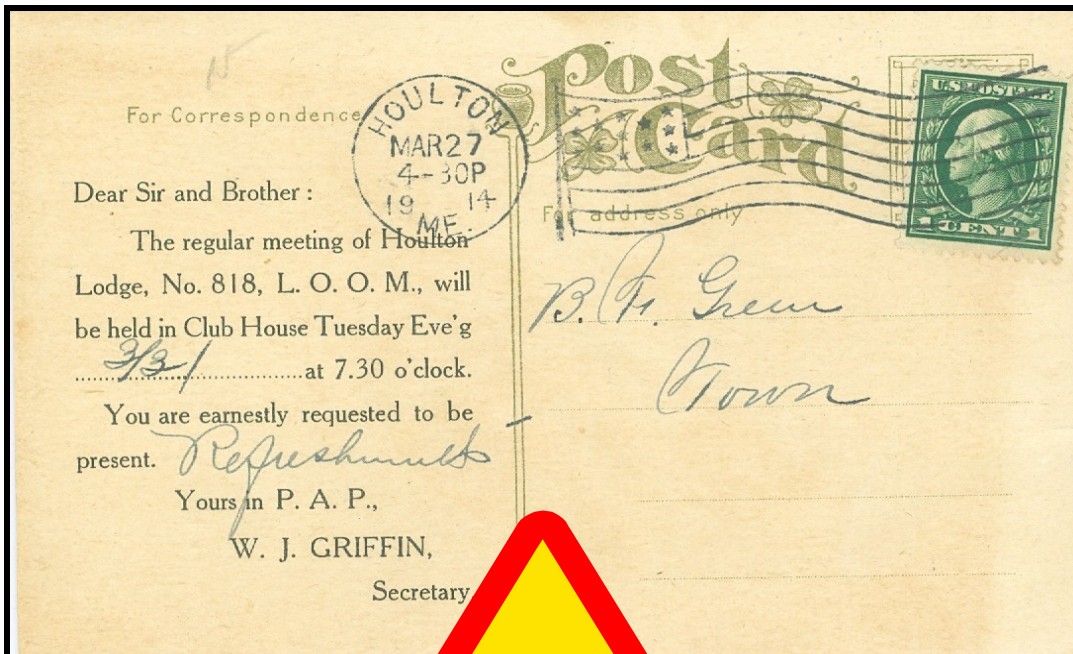 Post
Card
For Correspondence
HOULTON
MAR 27
4-30P
19 14
ME.
U.S. POSTAGE
1 CENT 1
Dear Sir and Brother :
The regular meeting of Houlton
Lodge, No. 818, L. O. O. M., will
be held in Club House Tuesday Eve'g
3/31 at 7.30 o'clock.
You are earnestly requested to be
present. Refreshments
Yours in P. A. P.,
W. J. GRIFFIN,
Secretary
For address only
B. F. Green
Town